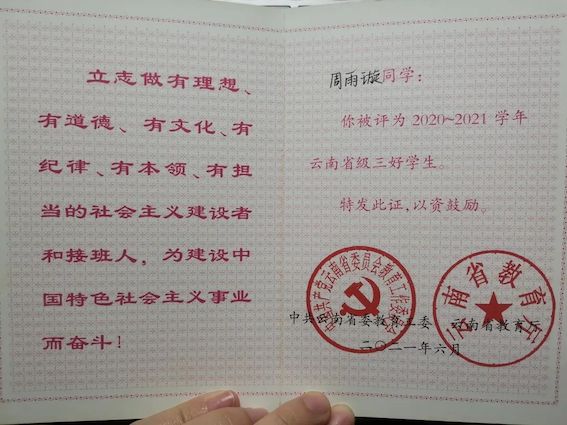 立志做有理想、
有道德、有文化、有
纪律、有本领、有担
当的社会主义建设者
和接班人，为建设中
国特色社会主义事业
而奋斗！
周雨璇同学：
你被评为2020~2021学年
云南省级三好学生。
特发此证，以资鼓励。
中国共产党云南省委员会教育工作委员会
云南省教育厅
中共云南省委教育工委 云南省教育厅
二〇二一年六月